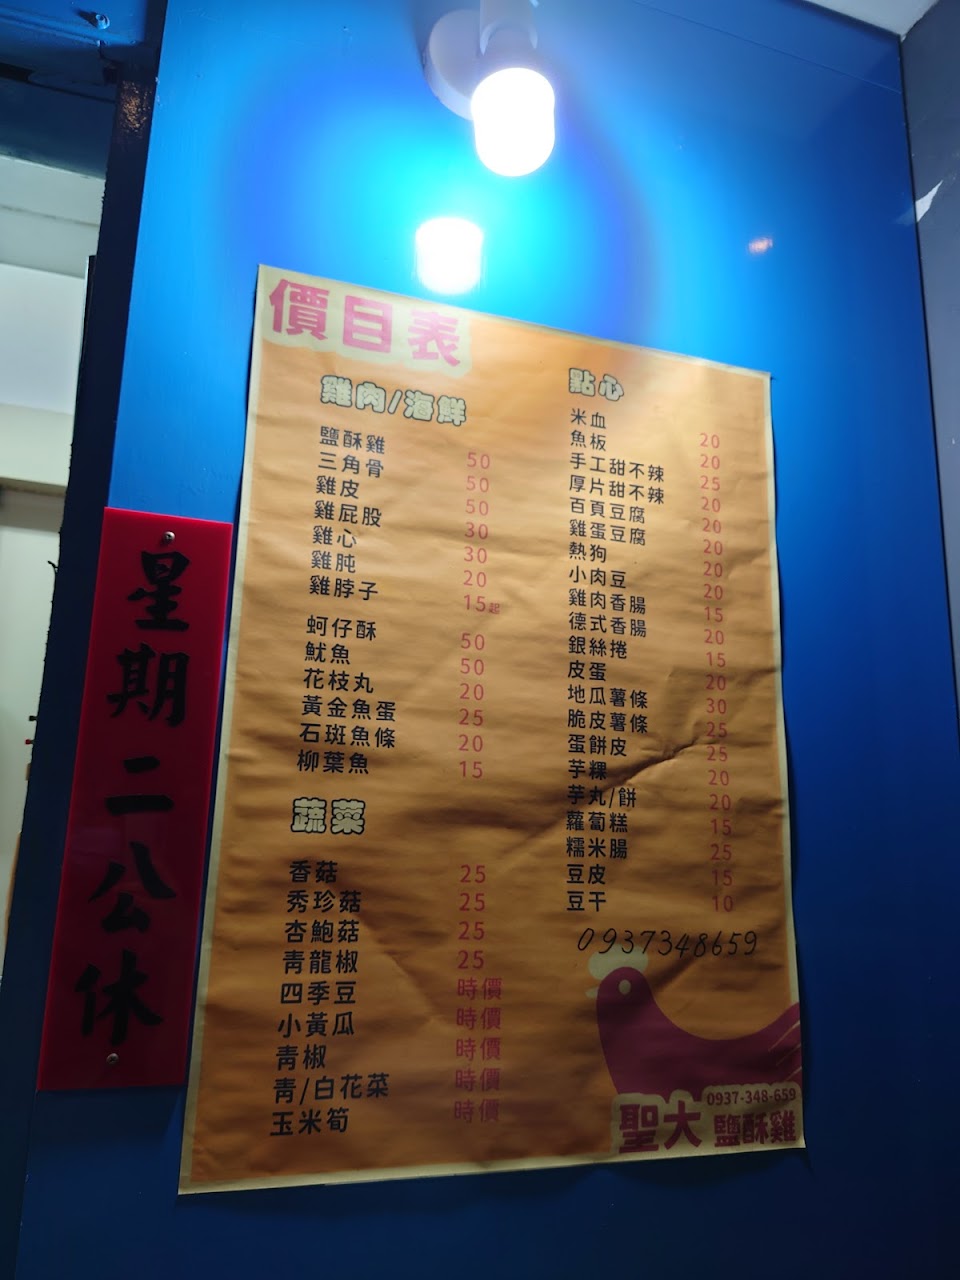 價目表
雞肉/海鮮
鹽酥雞 50
三角骨 50
雞皮 50
雞屁股 30
雞心 30
雞肫 20
雞脖子 15起
蚵仔酥 50
魷魚 50
花枝丸 20
黃金魚蛋 25
石斑魚條 20
柳葉魚 15
蔬菜
香菇 25
秀珍菇 25
杏鮑菇 25
青龍椒 25
四季豆 時價
小黃瓜 時價
青椒 時價
青/白花菜 時價
玉米筍 時價
點心
米血 20
魚板 20
手工甜不辣 25
厚片甜不辣 20
百頁豆腐 20
雞蛋豆腐 20
熱狗 20
小肉豆 20
雞肉香腸 15
德式香腸 20
銀絲捲 15
皮蛋 20
地瓜薯條 30
脆皮薯條 25
蛋餅皮 25
芋粿 20
芋丸/餅 20
蘿蔔糕 15
糯米腸 25
豆皮 15
豆干 10
0937348659
0937-348-659
聖大 鹽酥雞
星期二公休